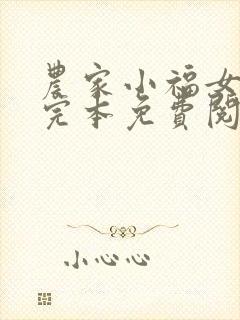 農家小福女
完本免費閱
小心心